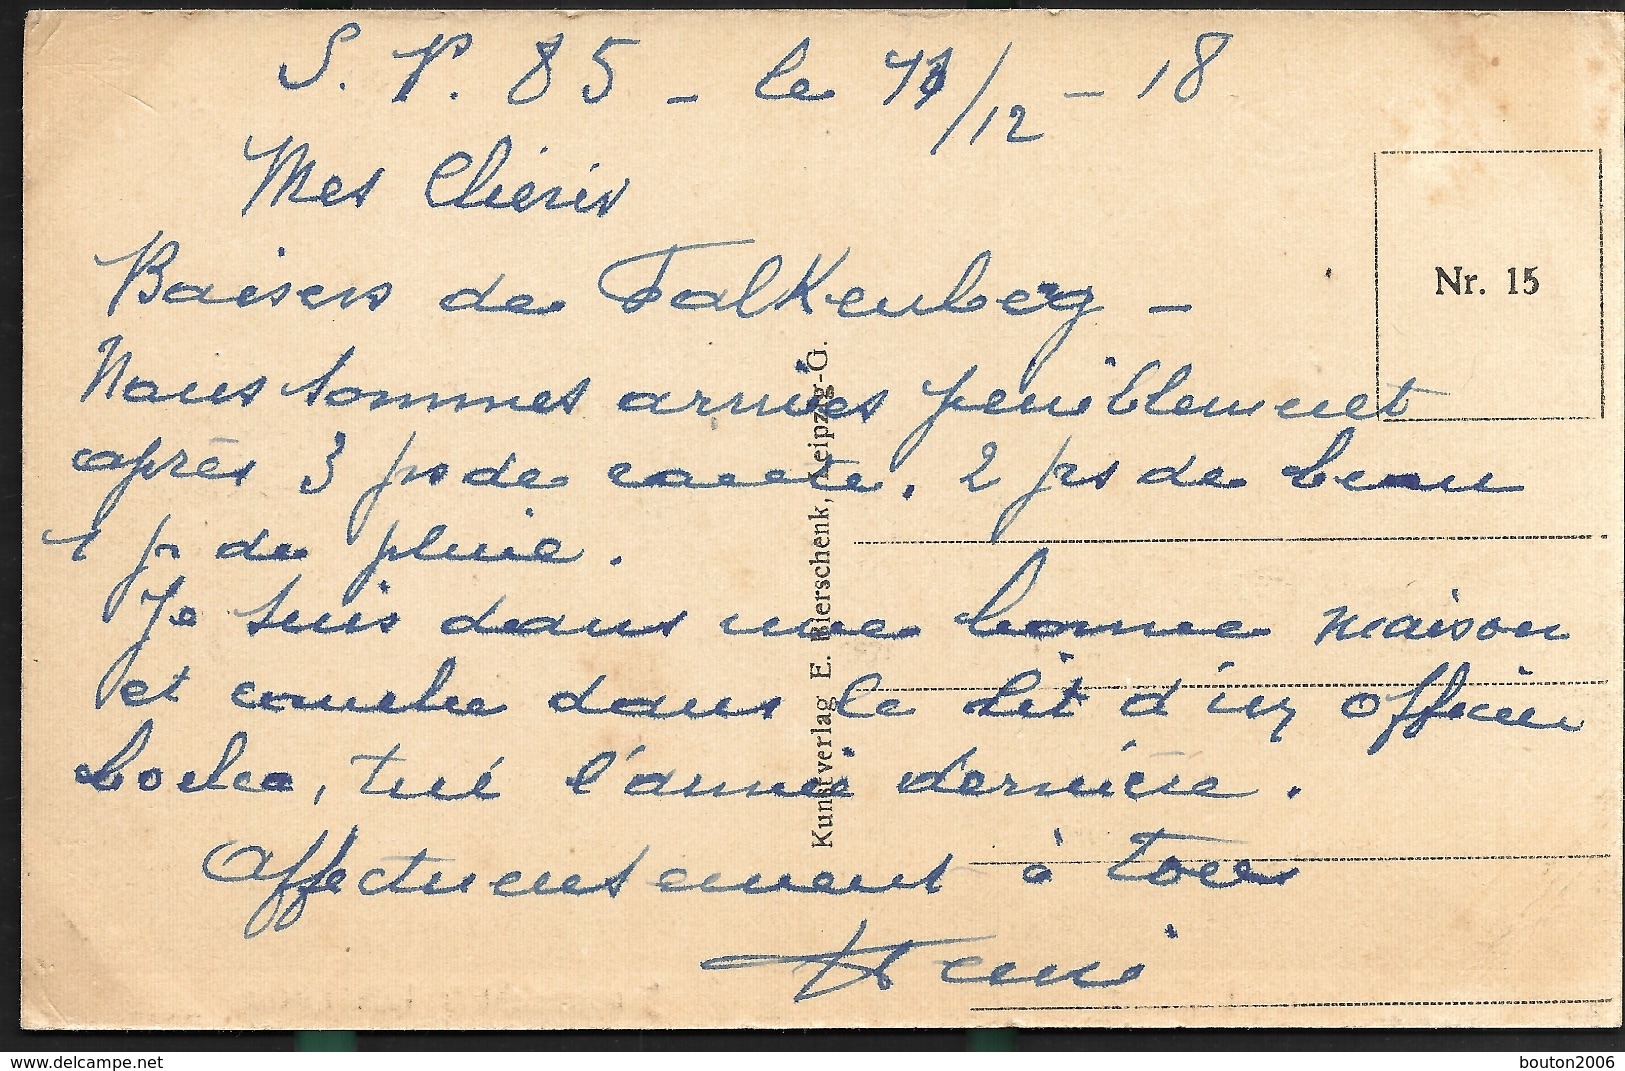 S. P. 85 - le 11/12 - 18
Mes Chéris
Baisers de Falkenberg -
Nous sommes arrivés péniblement
après 3 jrs de route, 2 jrs de beau
1 jr de pluie.
Je suis dans une bonne maison
et couche dans le lit d'un officier
boche, tué l'année dernière.
Affectueusement à tous
Henri
Nr. 15
Kunstverlag E. Bierschenk, Leipzig-G.
delcampe.net
bouton2006